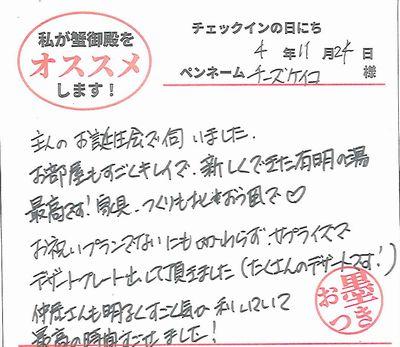 私が蟹御殿を
オススメ
します!
チェックインの日にち
4年11月24日
ペンネーム チーズケイコ 様
主人のお誕生会で伺いました。
お部屋もすごくキレイで、新しくできた有明の湯
最高です!家具、つくりも おう風で♡
お祝いプランでないにもかかわらず、サプライズで
デザートプレート出して頂きました(たくさんのデザートです!)
仲居さんも明るくすごく気が利いていて
最高の時間すごせました!
お墨つき